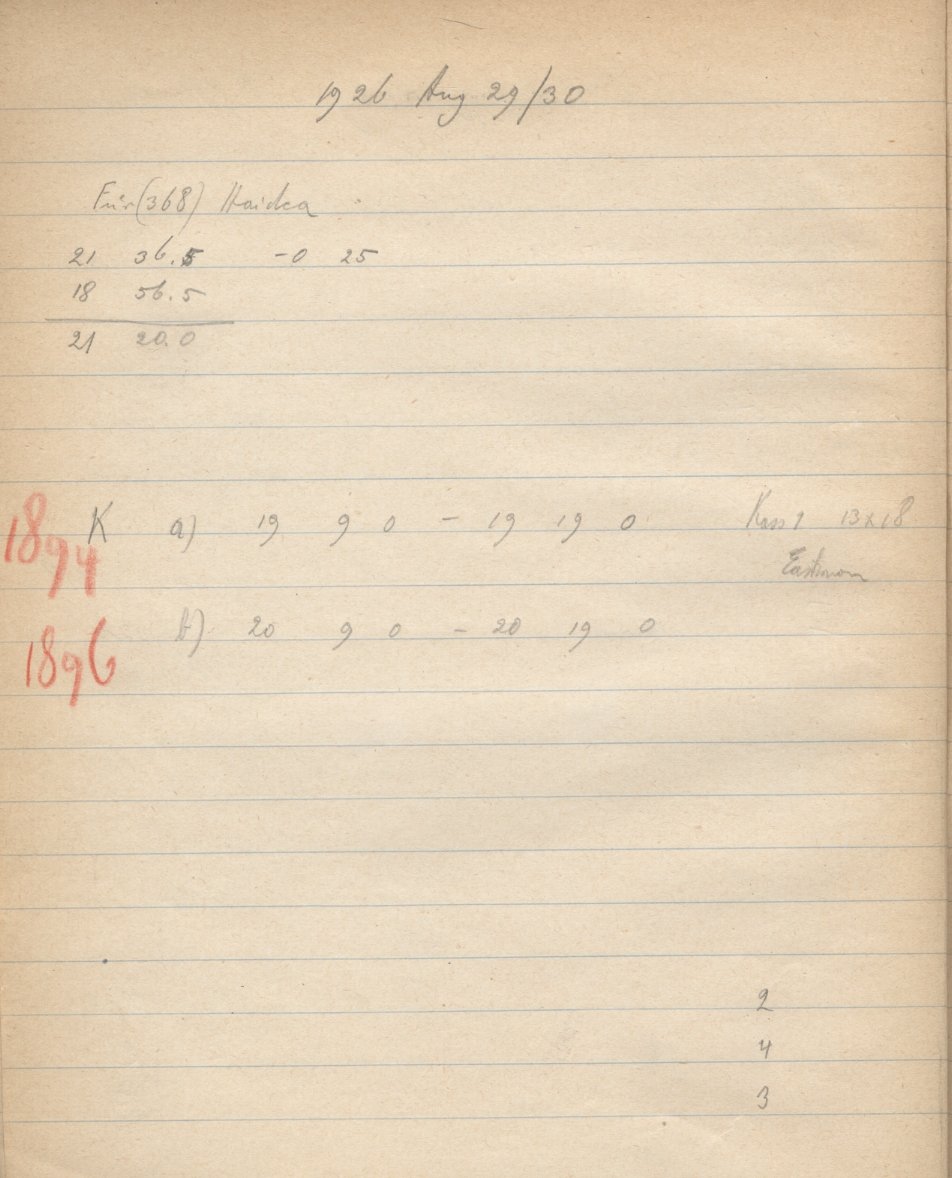 1926 Aug 29/30
Für (368) Haidea
21 36.5 -0 25
18 56.5
21 20.0
1894 K a) 19 9 0 - 19 19 0 Kass 1 13x18
Eastman
1896 b) 20 9 0 - 20 19 0
2
4
3